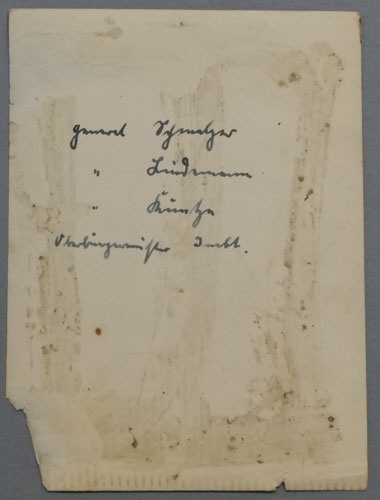 General Schmetzer
" Lindemann
" Kuntze
Oberbürgermeister Imbt.